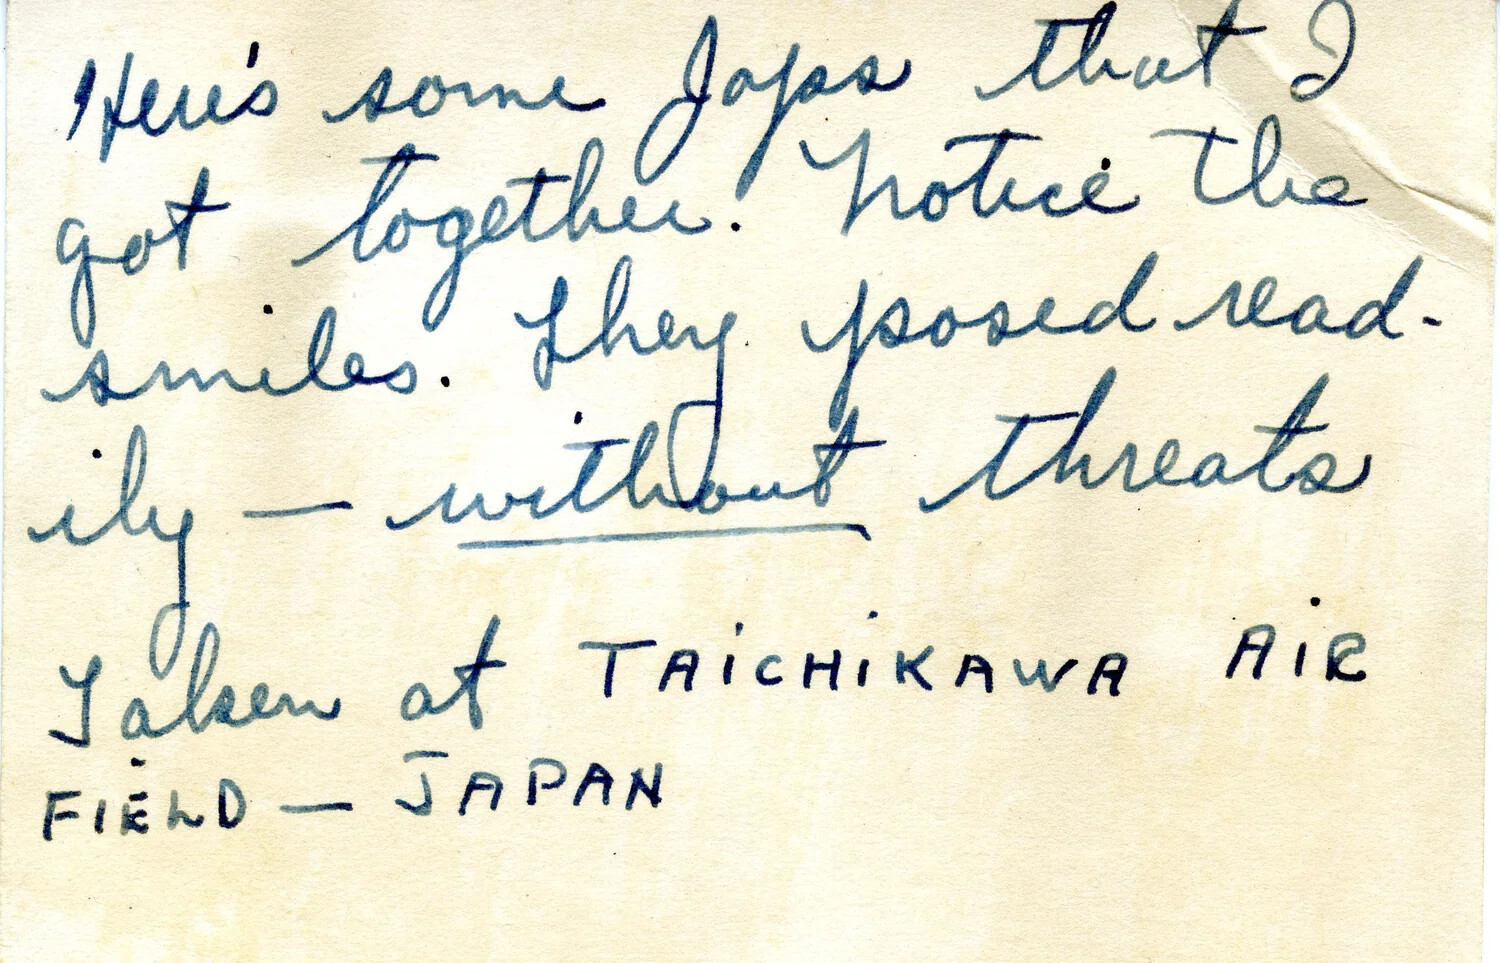 Here's some Japs that I
got together. Notice the
smiles. They posed read-
ily — without threats
Taken at TAICHIKAWA AIR
FIELD — JAPAN